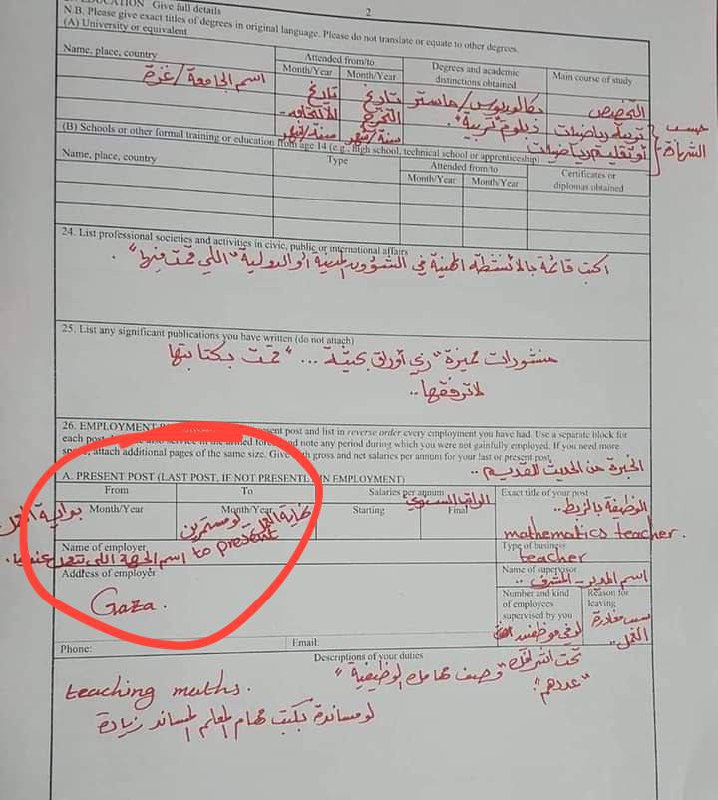 EDUCATION Give full details
2
N.B. Please give exact titles of degrees in original language. Please do not translate or equate to other degrees.
(A) University or equivalent
Name, place, country
Attended from/to
Month/Year
Month/Year
Degrees and academic distinctions obtained
Main course of study
اسم الجامعة/غزة
تاريخ
تاريخ التخرج
سنة/شهر
سنة/شهر
بكالوريوس/ماستر
دبلوم "تربية".
التخصص
تربية رياضيات
أو تعليم رياضيات
حسب
الشهادة
(B) Schools or other formal training or education from age 14 (e.g., high school, technical school or apprenticeship)
Name, place, country
Type
Attended from/to
Month/Year
Month/Year
Certificates or diplomas obtained
24. List professional societies and activities in civic, public or international affairs
اكتب قائمة بالأنشطة المهنية في الشؤون المدنية أو الدولية "اللي قمت فيها".
25. List any significant publications you have written (do not attach)
منشورات مميزة "زي أوراق بحثية ... " قمت بكتابتها
لا ترفقها..
26. EMPLOYMENT
present post and list in reverse order every employment you have had. Use a separate block for
each post.
and note any period during which you were not gainfully employed. If you need more
space, attach additional pages of the same size. Give both gross and net salaries per annum for your last or present post.
الخبرة من الحديث للقديم..
A. PRESENT POST (LAST POST, IF NOT PRESENTLY IN EMPLOYMENT)
From
To
Salaries per annum
الراتب السنوي
Exact title of your post
Month/Year
Month/Year
Starting
Final
بداية
لو مستمرين
to present
الوظيفة بالزبط..
mathematics teacher.
Name of employer
Type of business
teacher
Address of employer
Name of supervisor
اسم المدير - المشرف..
Gaza.
Number and kind of employees supervised by you
Reason for leaving
لو في موظفين
تحت اشرافك
"عددهم".
سبب مغادرة
العمل..
Phone:
Email:
Descriptions of your duties
"وصف مهامك الوظيفية"
teaching maths.
لو مساندة بكتب مهام المعلم المساند زيادة